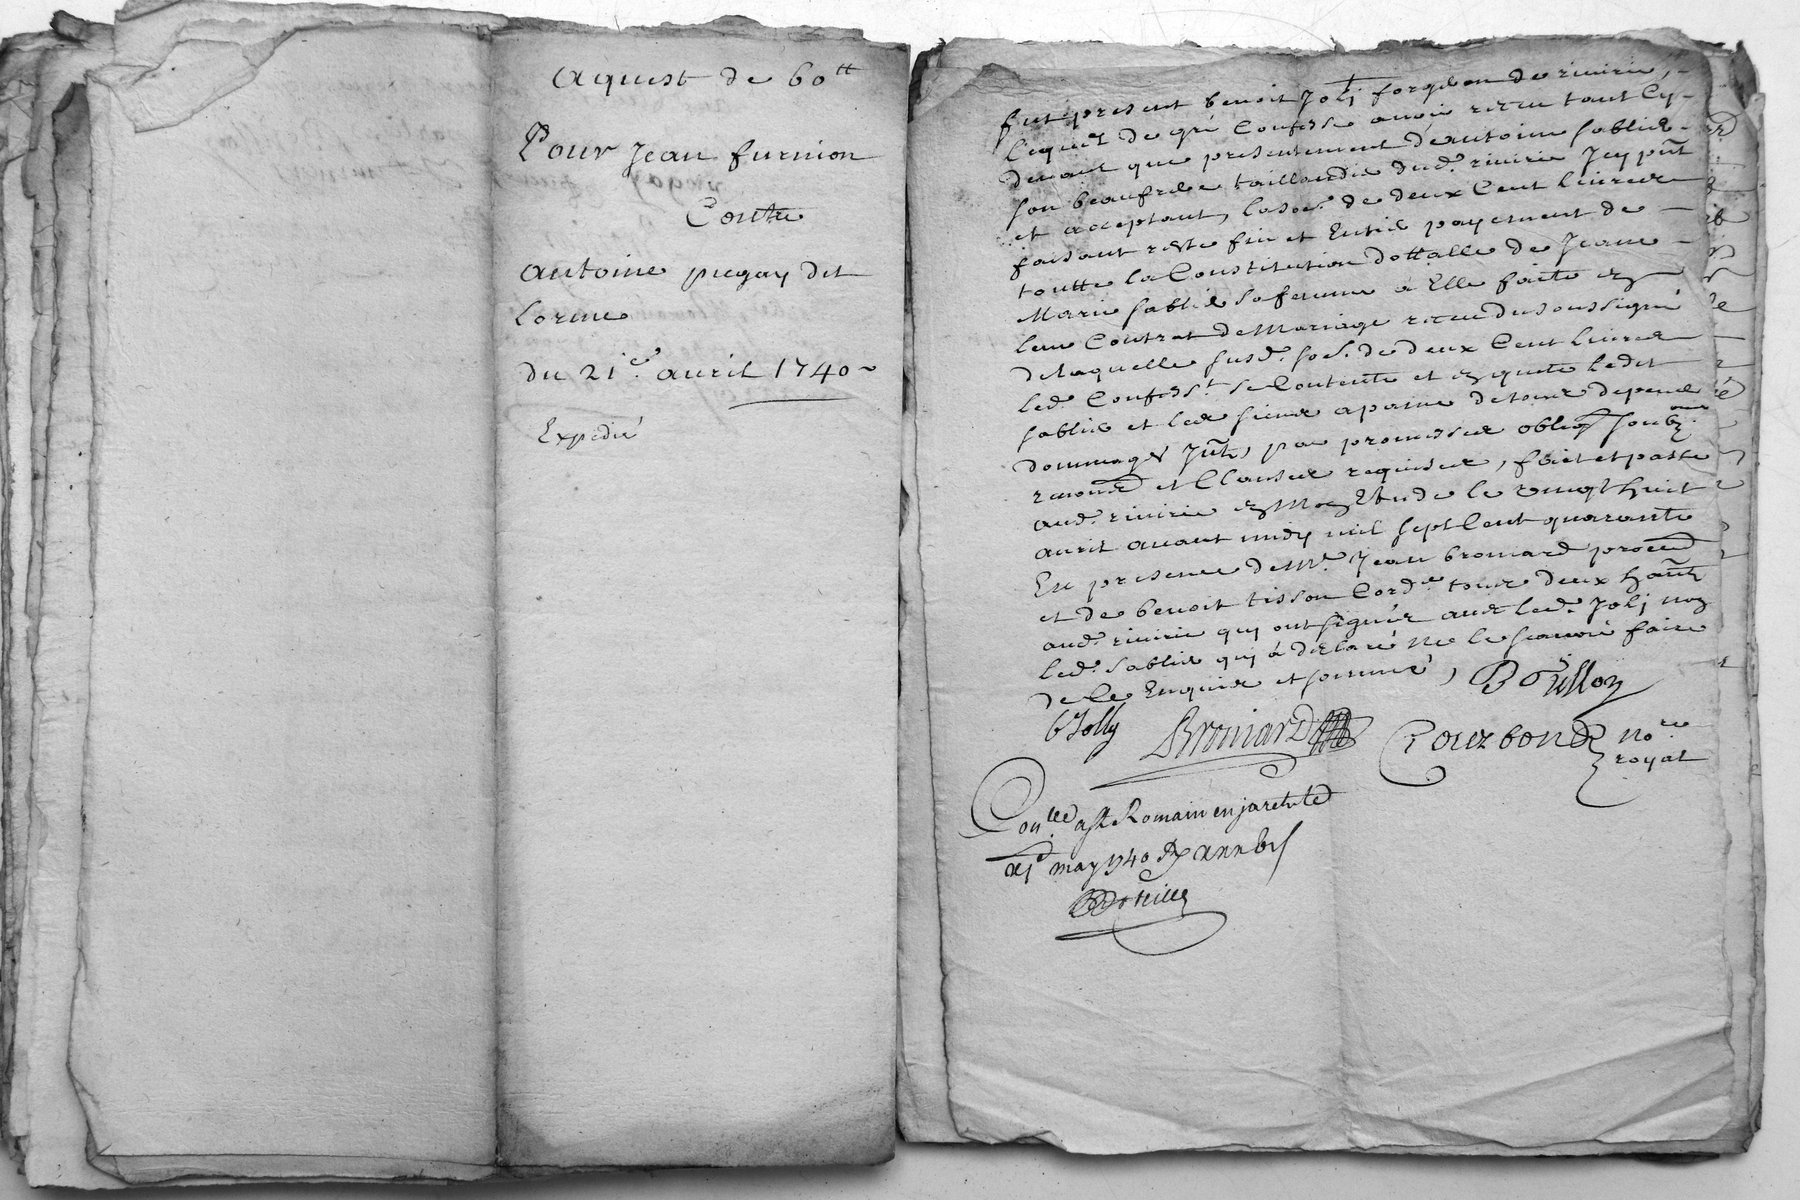 aquest de 60tt
Pour Jean furnion
Contre
antoine pregay dit
Lorme
du 21.e avril 1740
Expedié
fut present benoit Joly forgeron de riverie,
lequel de gré Confesse avoir receu tant Cy
devant que presentement d'antoine sablier
son beaufrere taillandier dud. riverie Icy pnt
et acceptant, la so.e de deux Cent livres
faisant reste fin et Entier payement de
toutte la Constitution dottalle de Jeane
Marie sablier sa femme a Elle faitte en
leur Contrat de Mariage receu du soussigné
de laquelle susd. so.e de deux Cent livres
led. Confess.t se Contente et en quitte ledit
sablier et les siens a paine de tous depens
dommages Jnts, par promesses oblig soub.ons
renonc et Clauses requises, fait et passé
aud. riverie en Mon Etude le vingt huit
avril avant midy mil sept Cent quarante
En presence de M.e Jean broniard
et de benoit tisson Cord.r tous deux habts
aud. riverie quy ont signés avec led. Joly non
led. sablier quy a declaré ne le scavoir faire
de ce Enquis et sommé,
B Tisson
b Jolly
Broniard
Courbon no.re
royal
Con.lle a St Romain en jarets le
may 1740